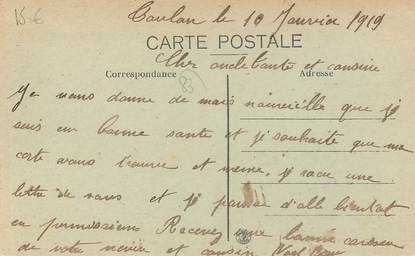 15 €
Toulon le 10 Janvier 1919
CARTE POSTALE
Cher oncle tante et cousine
Correspondance
Adresse
83
Je vous donne de mais nouvelle que je
suis en bonne sante et je souhaite que ma
carte vous trouve et meme. je recu une
lettre de vous et je pense d'alle bientot
en permissions Recevez une bonne caresse
de votre neveu et cousin Noel